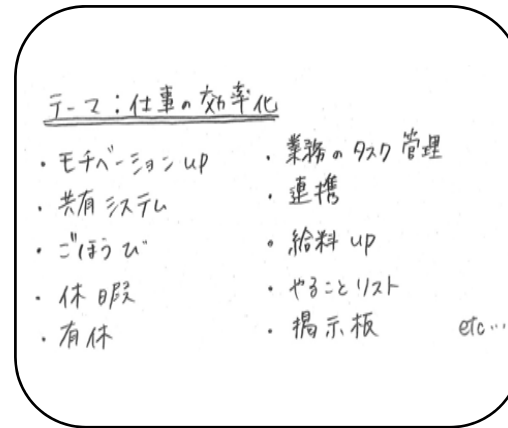 テーマ：仕事の効率化
・モチベーションup
・共有システム
・ごほうび
・休暇
・有休
・業務のタスク管理
・連携
・給料up
・やることリスト
・掲示板 etc…